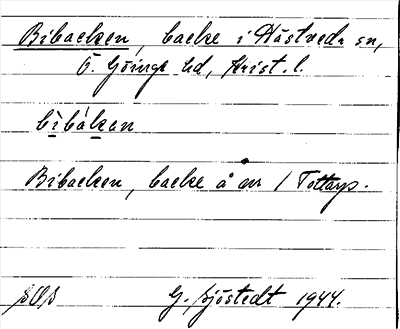 Bibacken, backe i Hästveda sn,
Ö. Göinge hd, Krist. l.
bìbákan
Bibacken, backe å en / Tottarp.
G. Sjöstedt 1944.